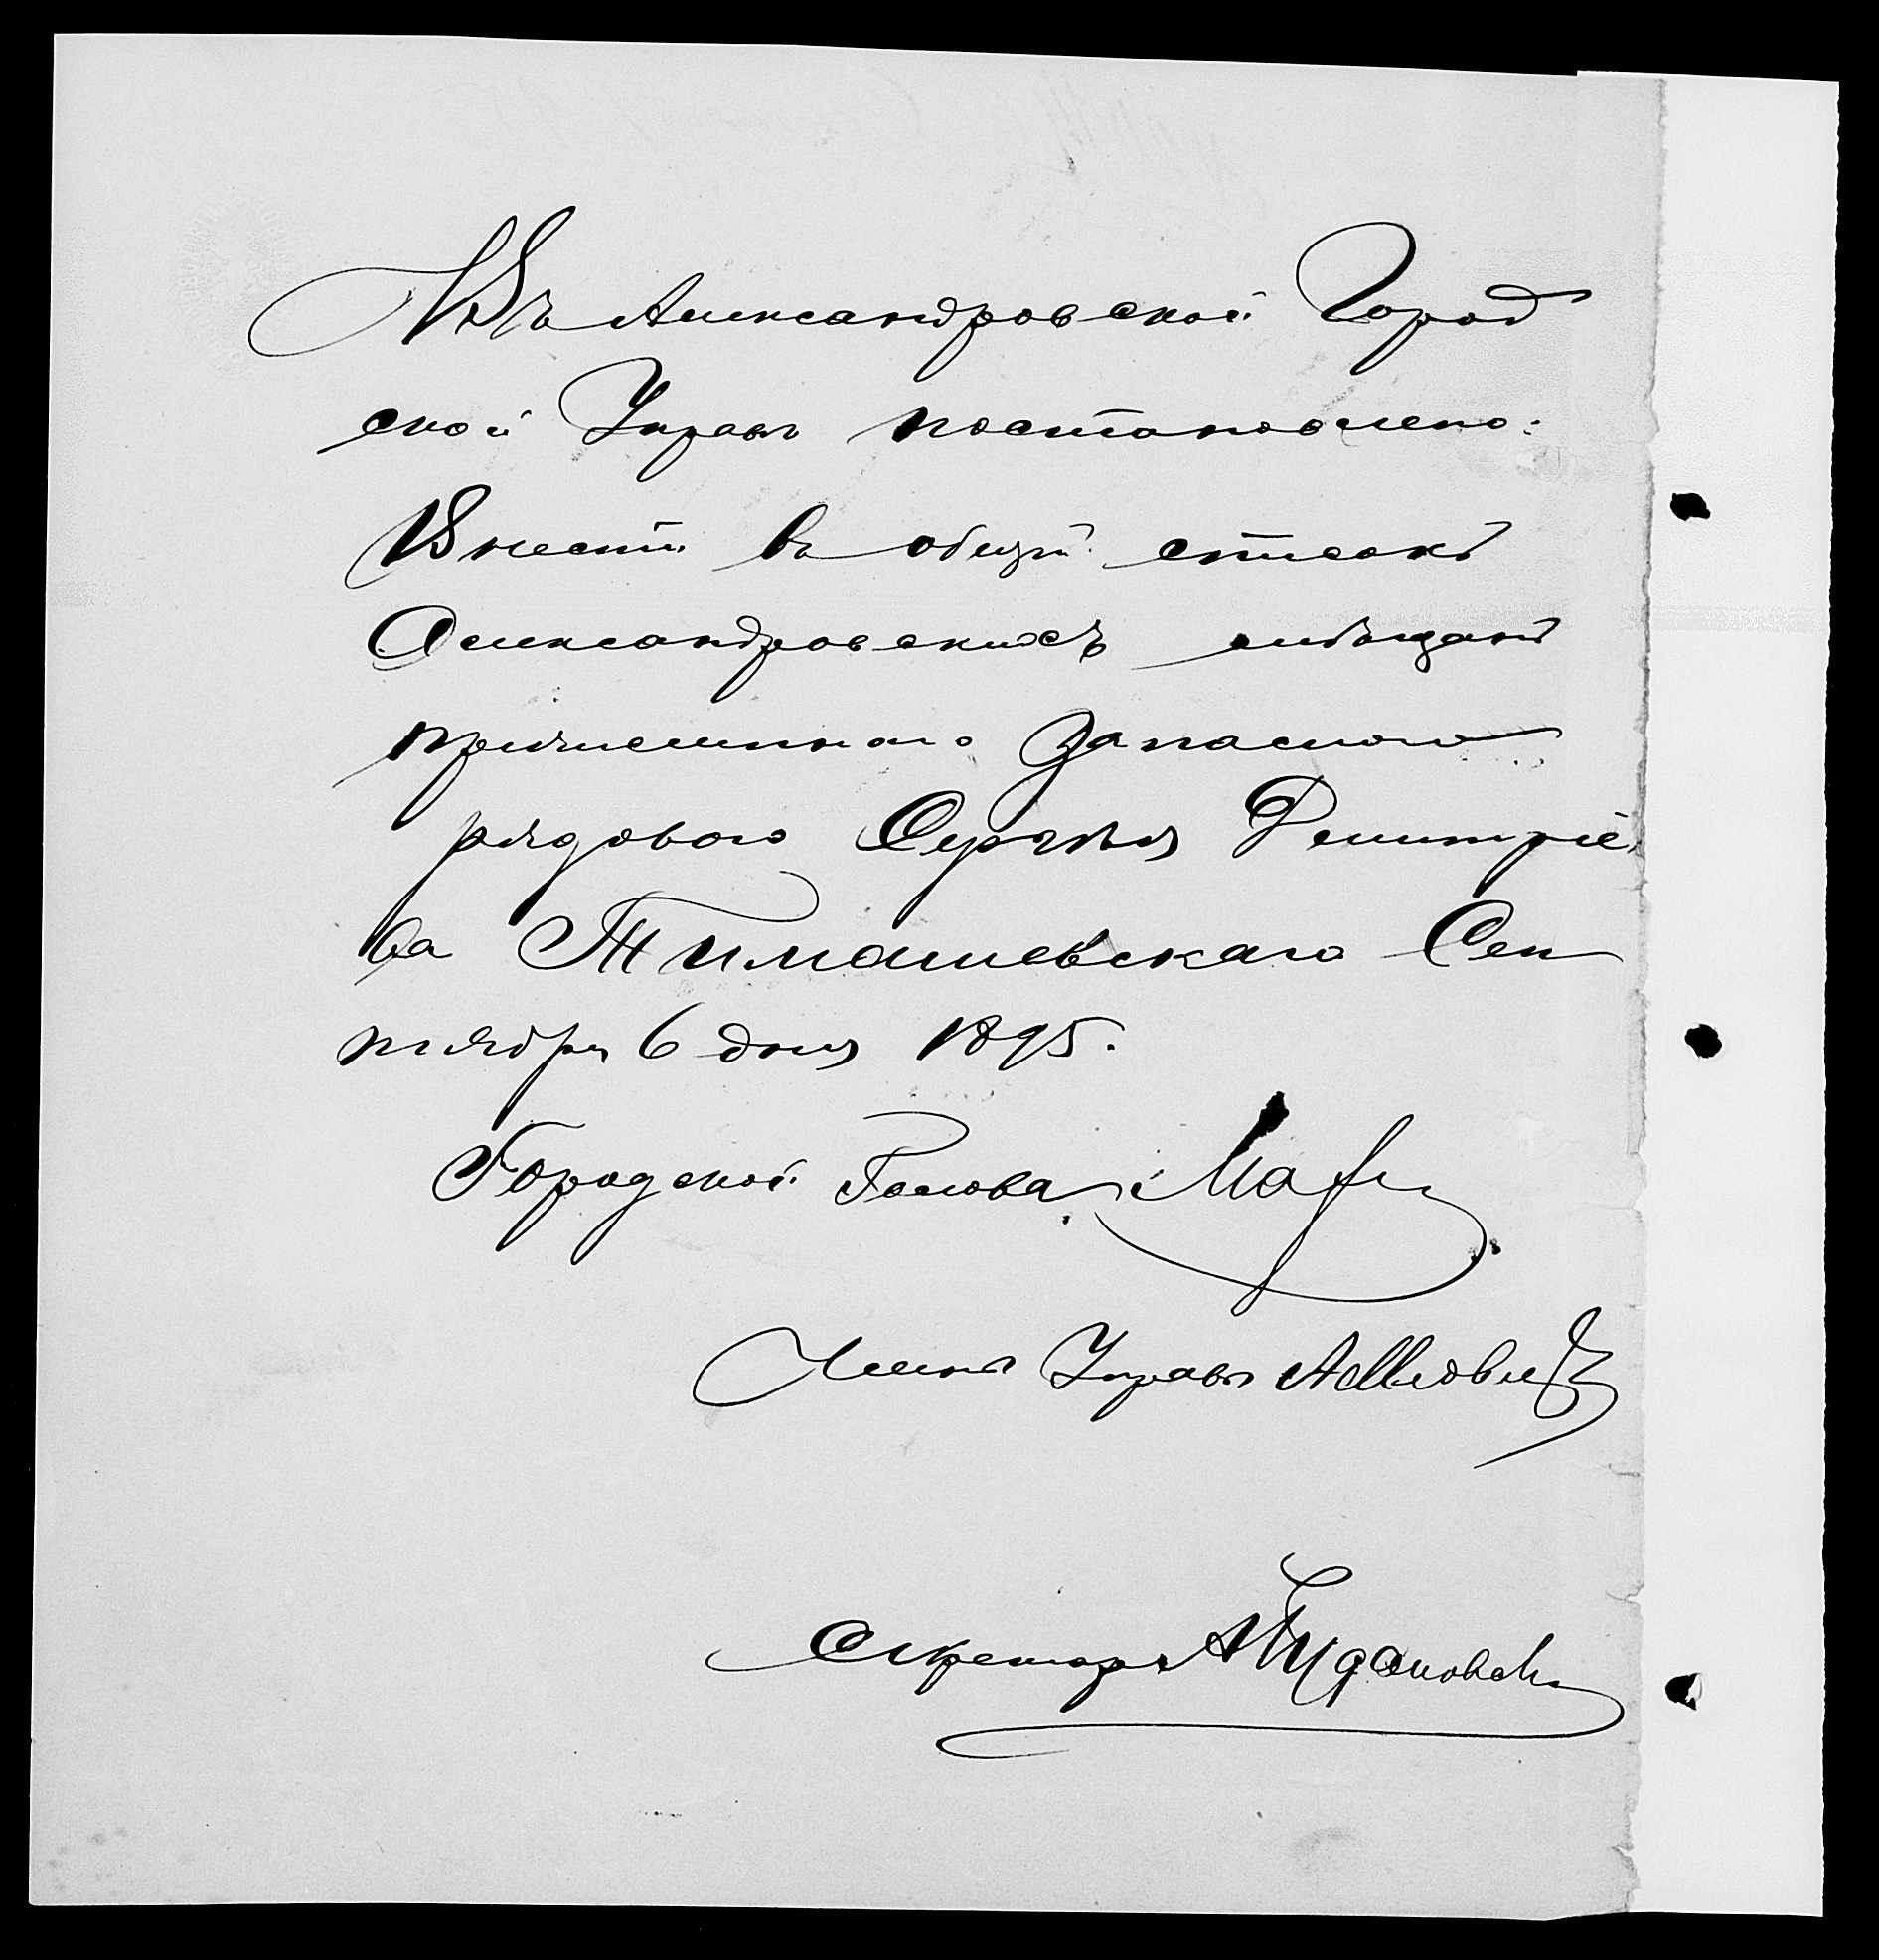 Въ Александровской Город
ской Управѣ постановлено:
Внести въ общій списокъ
Александровскихъ мѣщанъ
причисленнаго запаснаго
рядового Сергѣя Дмитріе
ва Тимашевскаго Сен
тября 6 дня 1895.
Городской Голова
Членъ Управы
Секретарь